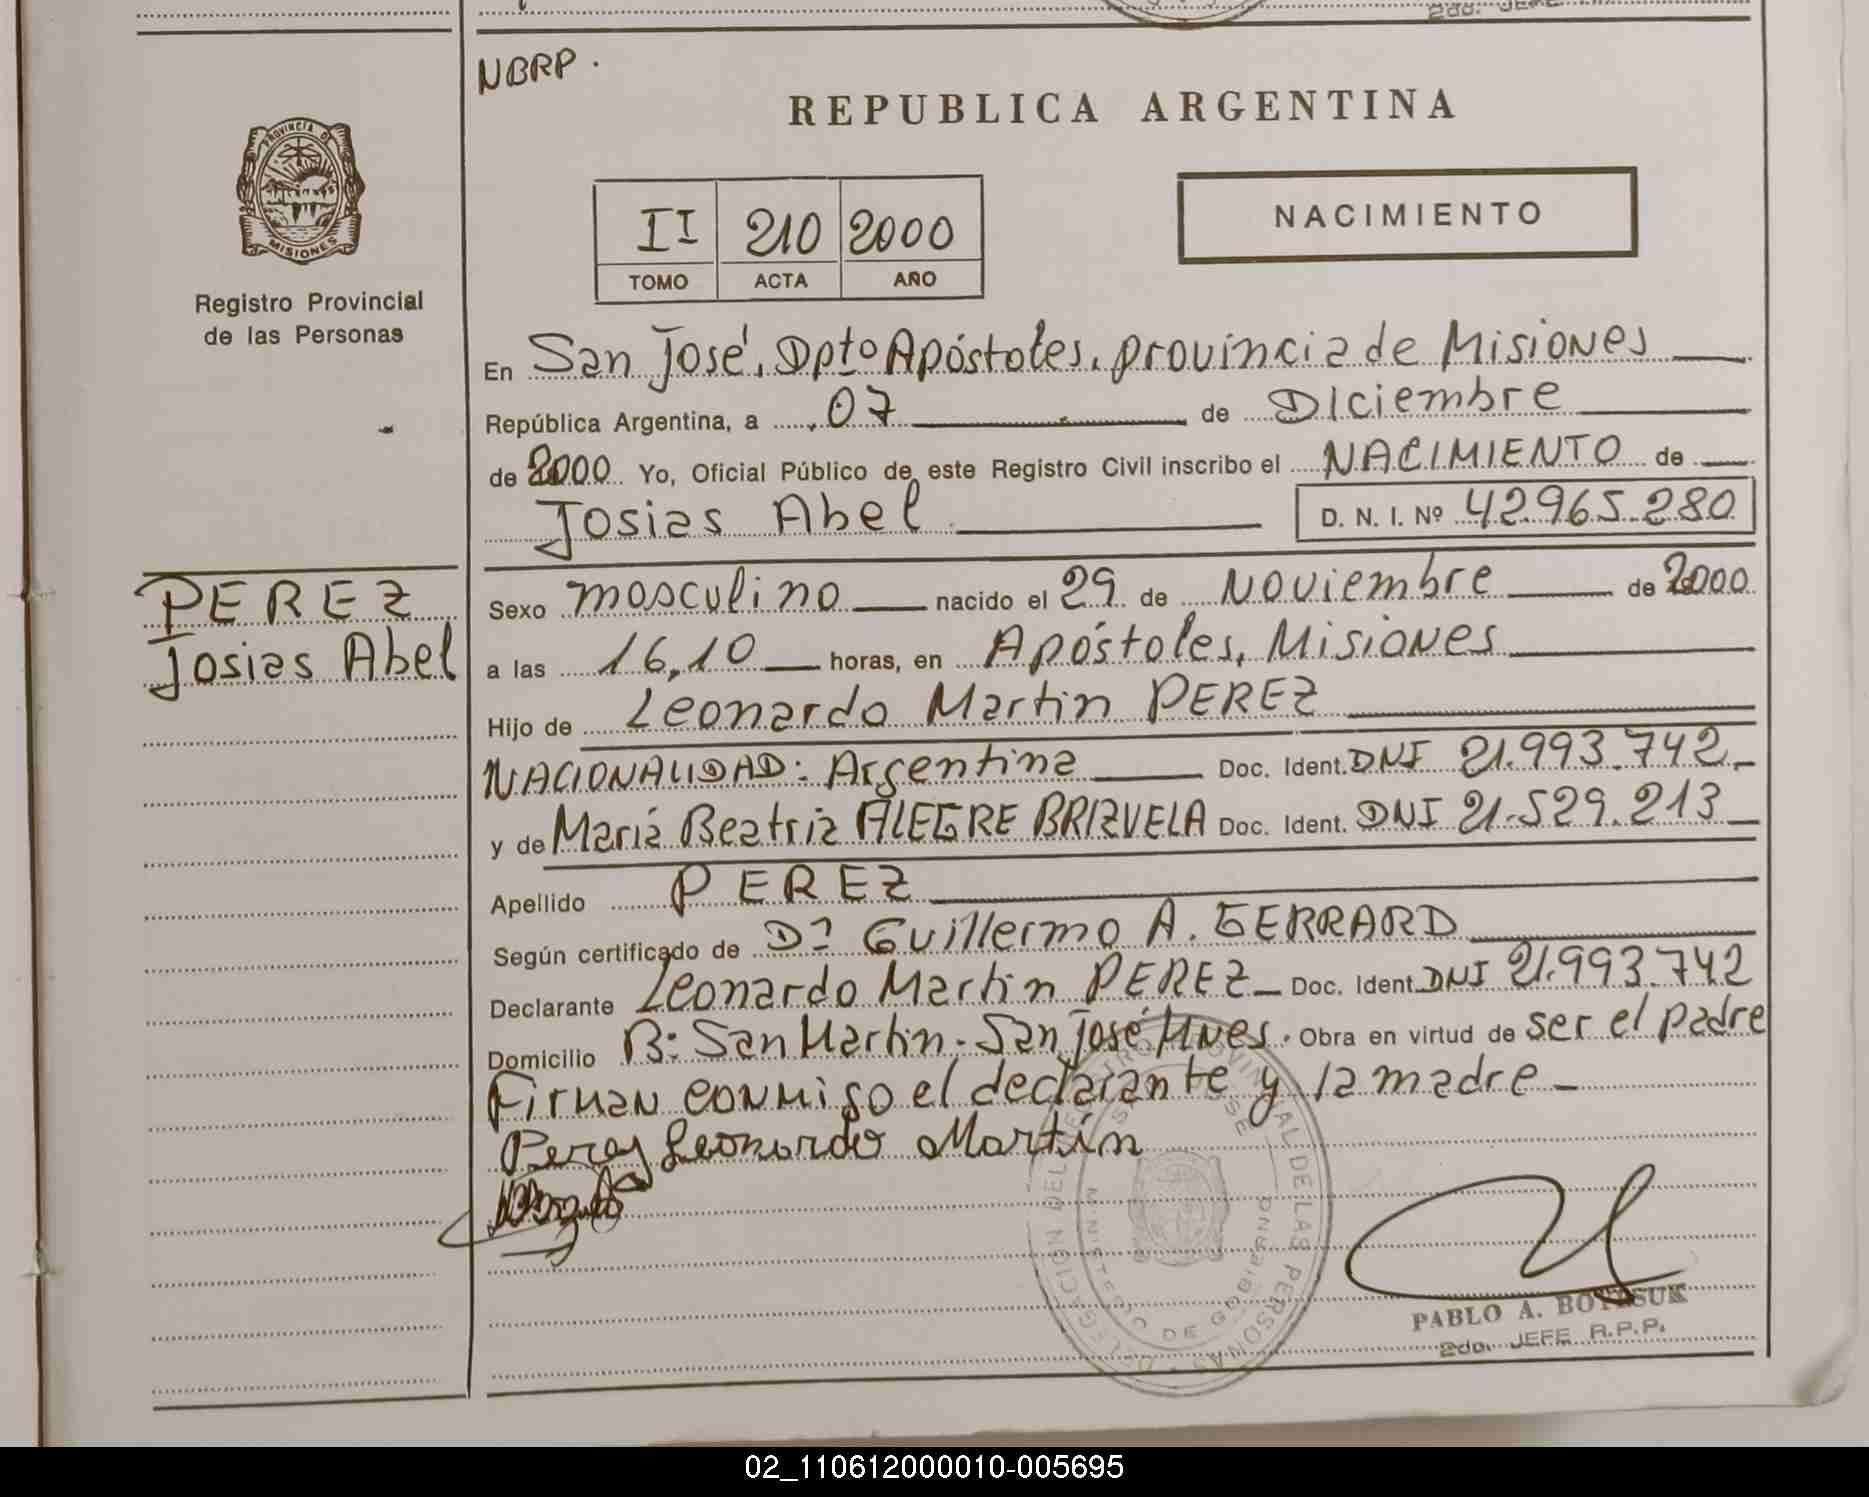 NBRP.
REPUBLICA ARGENTINA
PROVINCIA DE
MISIONES
Registro Provincial
de las Personas
II 210 2000
TOMO ACTA AÑO
NACIMIENTO
En San José, Dpto Apóstoles, provincia de Misiones
República Argentina, a 07 de Diciembre
de 2000 Yo, Oficial Público de este Registro Civil inscribo el NACIMIENTO de
Josias Abel D. N. I. Nº 42.965.280
PEREZ
Josias Abel
Sexo masculino nacido el 29 de Noviembre de 2000
a las 16,10 horas, en Apóstoles, Misiones
Hijo de Leonardo Martin PEREZ
NACIONALIDAD: Argentina Doc. Ident. DNI 21.993.742
y de Maria Beatriz ALEGRE BRIZUELA Doc. Ident. DNI 21.529.213
Apellido PEREZ
Según certificado de Dr Guillermo A. GERRARD
Declarante Leonardo Martin PEREZ Doc. Ident. DNI 21.993.742
Domicilio Bº San Martin - San José Mnes. Obra en virtud de ser el padre
Firman conmigo el declarante y la madre
Perez Leonardo Martín
PABLO A.
2do. JEFE R.P.P.
02_110612000010-005695